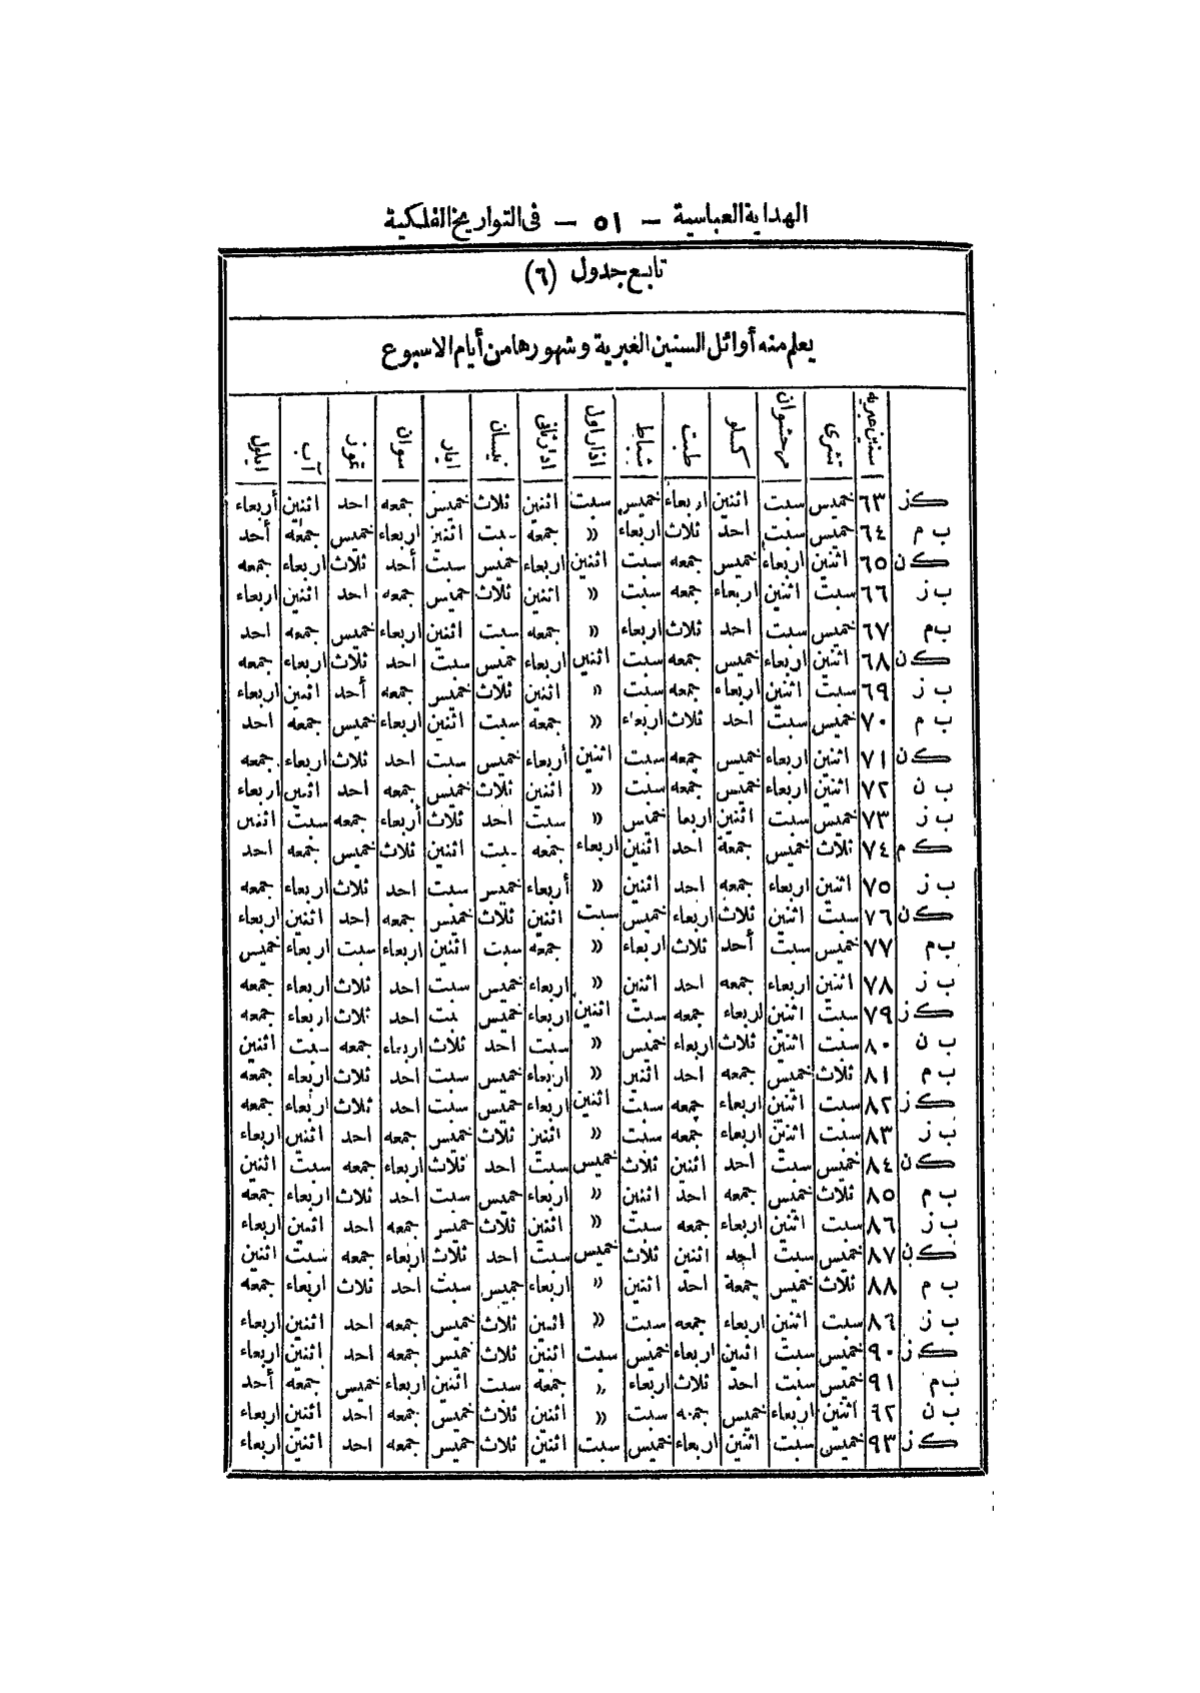 الهداية العباسية — ٥١ — فى التواريخ الفلكية
تابع جدول (٦)
يعلم منه أوائل السنين العبرية وشهورها من أيام الاسبوع
سنين عبريه تشرى مرحشوان كسلو طبت شباط اذار اول اذار ثانى نيسان ايار سوان تموز آب ايلول
كز ٦٣ خميس سبت اثنين اربعاء خميس سبت اثنين ثلاث خميس جمعه احد اثنين أربعاء
ب م ٦٤ خميس سبت احد ثلاث اربعاء » جمعه سبت اثنين اربعاء خميس جمعه أحد
كن ٦٥ اثنين اربعاء خميس جمعه سبت اثنين اربعاء خميس سبت أحد ثلاث اربعاء جمعه
ب ز ٦٦ سبت اثنين اربعاء جمعه سبت » اثنين ثلاث خميس جمعه احد اثنين اربعاء
ب م ٦٧ خميس سبت احد ثلاث اربعاء » جمعه سبت اثنين اربعاء خميس جمعه احد
كن ٦٨ اثنين اربعاء خميس جمعه سبت اثنين اربعاء خميس سبت احد ثلاث اربعاء جمعه
ب ز ٦٩ سبت اثنين اربعاء جمعه سبت » اثنين ثلاث خميس جمعه أحد اثنين اربعاء
ب م ٧٠ خميس سبت احد ثلاث اربعاء » جمعه سبت اثنين اربعاء خميس جمعه احد
كن ٧١ اثنين اربعاء خميس جمعه سبت اثنين أربعاء خميس سبت احد ثلاث اربعاء جمعه
ب ن ٧٢ اثنين اربعاء خميس جمعه سبت » اثنين ثلاث خميس جمعه احد اثنين اربعاء
ب ز ٧٣ خميس سبت اثنين اربعا خميس » سبت احد ثلاث أربعاء جمعه سبت اثنين
كم ٧٤ ثلاث خميس جمعة احد اثنين اربعاء جمعه سبت اثنين ثلاث خميس جمعه احد
ب ز ٧٥ اثنين اربعاء جمعه احد اثنين » أربعاء خميس سبت احد ثلاث اربعاء جمعه
كن ٧٦ سبت اثنين ثلاث اربعاء خميس سبت اثنين ثلاث خميس جمعه احد اثنين اربعاء
ب م ٧٧ خميس سبت أحد ثلاث اربعاء » جمعه سبت اثنين اربعاء سبت اربعاء خميس
ب ز ٧٨ اثنين اربعاء جمعه احد اثنين » اربعاء خميس سبت احد ثلاث اربعاء جمعه
كز ٧٩ سبت اثنين اربعاء جمعه سبت اثنين اربعاء خميس سبت احد ثلاث اربعاء جمعه
ب ن ٨٠ سبت اثنين ثلاث اربعاء خميس » سبت احد ثلاث اربعاء جمعه سبت اثنين
ب م ٨١ ثلاث خميس جمعه احد اثنين » اربعاء خميس سبت احد ثلاث اربعاء جمعه
كز ٨٢ سبت اثنين اربعاء جمعه سبت اثنين اربعاء خميس سبت احد ثلاث اربعاء جمعه
ب ز ٨٣ سبت اثنين اربعاء جمعه سبت » اثنين ثلاث خميس جمعه احد اثنين اربعاء
كن ٨٤ خميس سبت احد اثنين ثلاث خميس سبت احد ثلاث اربعاء جمعه سبت اثنين
ب م ٨٥ ثلاث خميس جمعه احد اثنين » اربعاء خميس سبت احد ثلاث اربعاء جمعه
ب ز ٨٦ سبت اثنين اربعاء جمعه سبت » اثنين ثلاث خميس جمعه احد اثنين اربعاء
كن ٨٧ خميس سبت احد اثنين ثلاث خميس سبت احد ثلاث اربعاء جمعه سبت اثنين
ب م ٨٨ ثلاث خميس جمعة احد اثنين » اربعاء خميس سبت احد ثلاث اربعاء جمعه
ب ز ٨٦ سبت اثنين اربعاء جمعه سبت » اثنين ثلاث خميس جمعه احد اثنين اربعاء
كز ٩٠ خميس سبت اثنين اربعاء خميس سبت اثنين ثلاث خميس جمعه احد اثنين اربعاء
ب م ٩١ خميس سبت احد ثلاث اربعاء » جمعه سبت اثنين اربعاء خميس جمعه أحد
ب ن ٦٢ اثنين اربعاء خميس جمعه سبت » اثنين ثلاث خميس جمعه احد اثنين اربعاء
كز ٩٣ خميس سبت اثنين اربعاء خميس سبت اثنين ثلاث خميس جمعه احد اثنين اربعاء